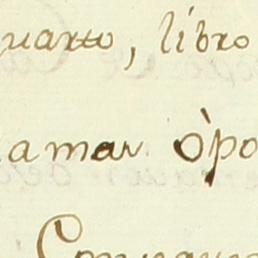 uarto, libro
amar òpo
Con